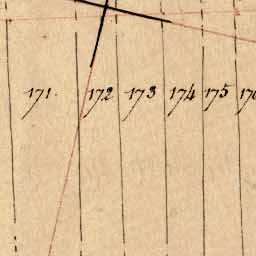 171. 172 173 174 175